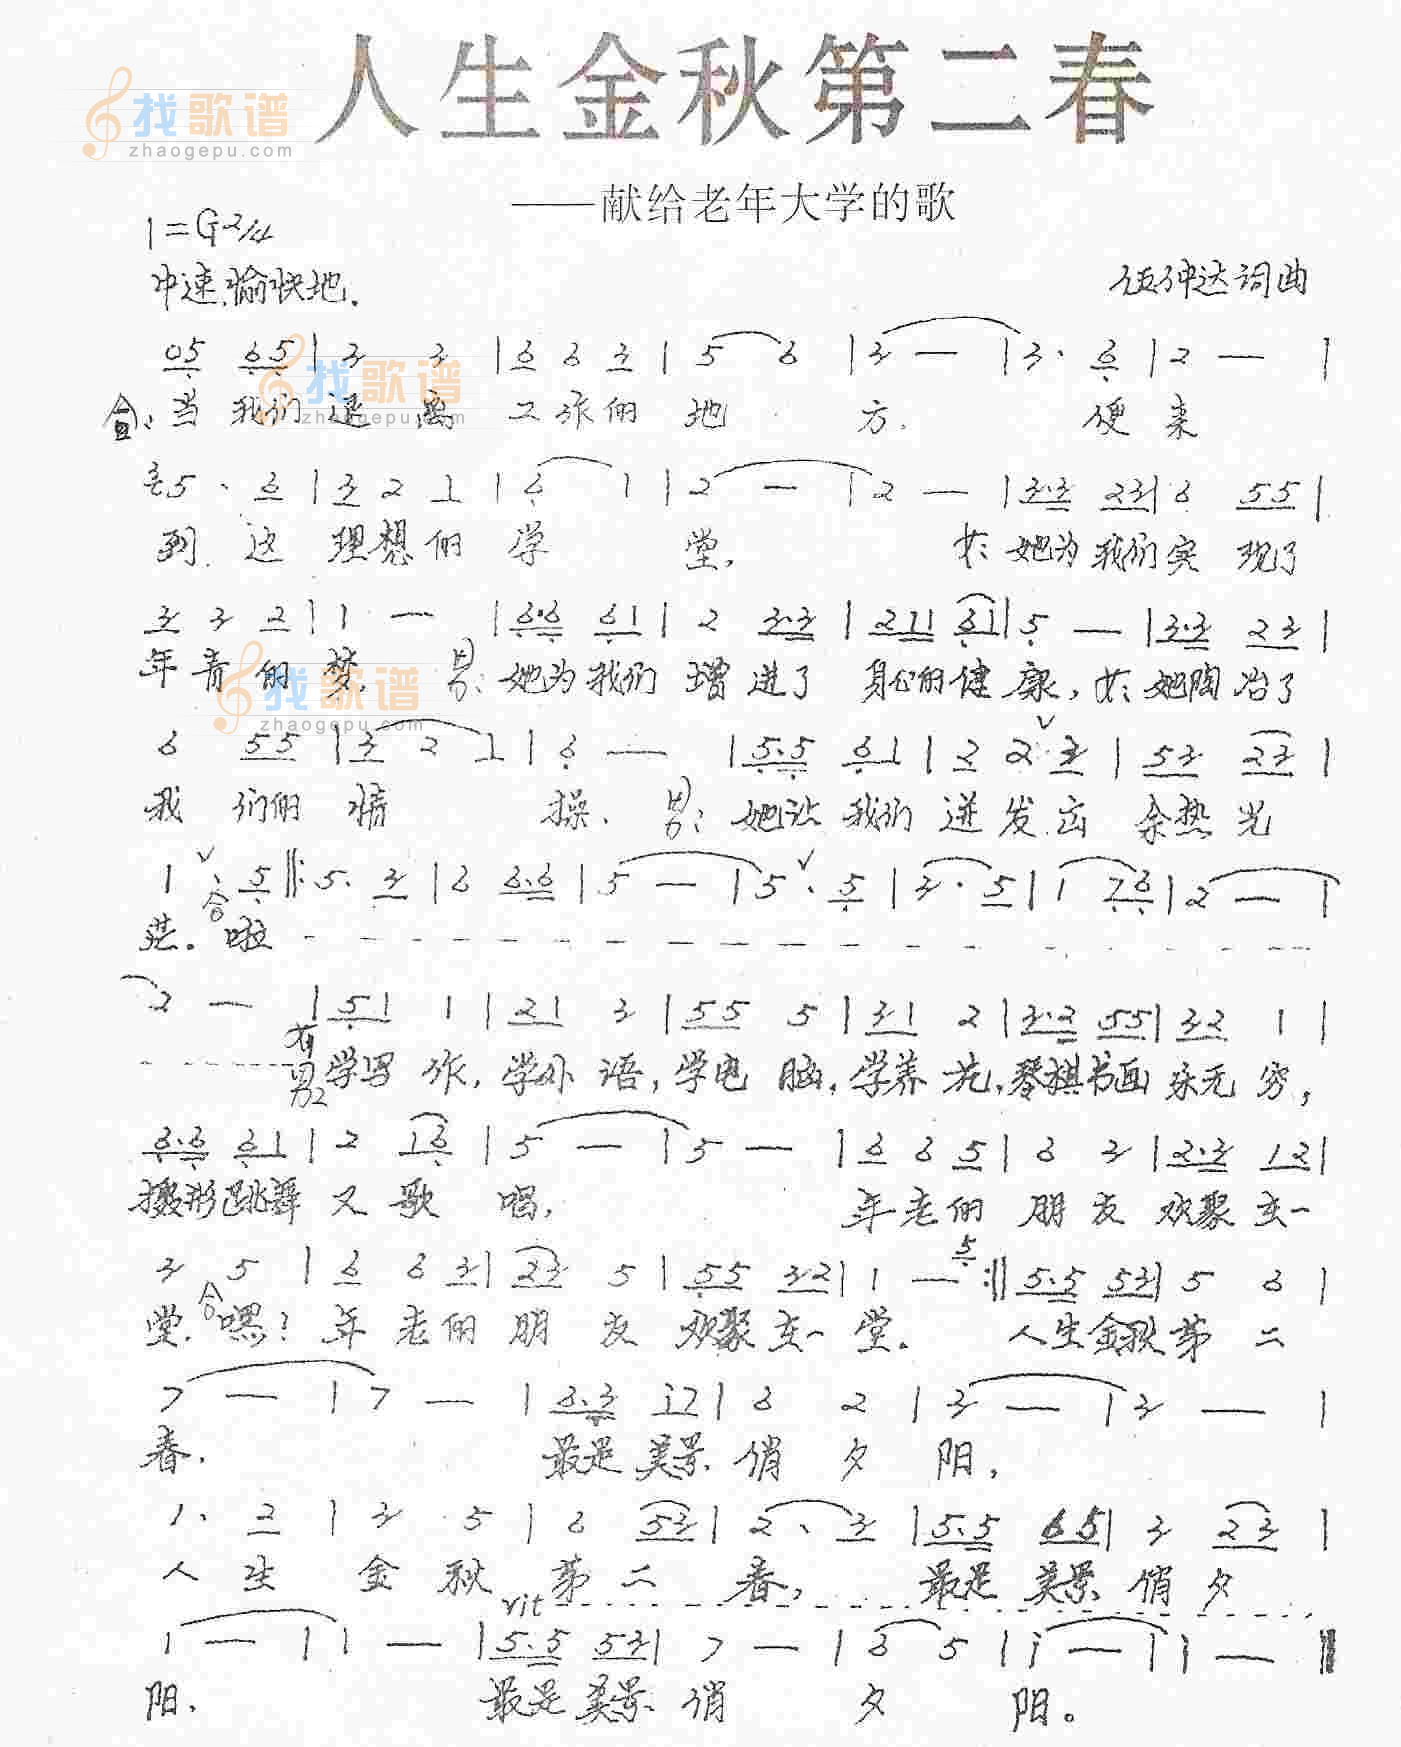 人生金秋第二春
找歌谱
zhaogepu.com
——献给老年大学的歌
1=G 2/4
中速.愉快地.
伍钟达词曲
05 65 | 3 3 | 6 6 3 | 5 6 | 3 — | 3· 6 | 2 — |
合: 当我们退离工作的地方. 便来
找歌谱
zhaogepu.com
5 · 6 | 3 2 1 | 6 1 | 2 — | 2 — | 3·3 23 | 6 55 |
到 这理想的学堂. 女: 她为我们实现了
3 3 2 | 1 — | 6·6 61 | 2 3·3 | 211 61 | 5 — | 3·3 23 |
年青的梦. 男: 她为我们增进了身心的健康, 女: 她陶冶了
找歌谱
zhaogepu.com
6 55 | 3 2 1 | 6 — | 5·5 61 | 2 2 3 | 53 23 |
我们的情操. 男: 她让我们迸发出余热光
1 · 5 ‖: 5· 3 | 6 6·6 | 5 — | 5 · 5 | 3· 5 | 1 76 | 2 — |
芒。合 啦 - - - - - -
2 — | 51 1 | 21 3 | 55 5 | 31 2 | 3·2 55 | 32 1 |
女 男 学写作, 学外语, 学电脑, 学养花, 琴棋书画永无穷,
6·6 61 | 2 16 | 5 — | 5 — | 6 6 5 | 6 3 | 2·3 12 |
摄影跳舞又歌唱, 年老的朋友欢聚在一
3 5 | 6 6 3 | 23 5 | 55 32 | 1 — 5 :‖ 5·5 53 | 5 6 |
堂. 合 嘿! 年老的朋友欢聚在一堂。 人生金秋第二
7 — | 7 — | 6·3 17 | 6 2 | 3 — | 3 — |
春. 最是美景俏夕阳,
1· 2 | 3 5 | 6 53 | 2· 3 | 5·5 65 | 3 23 |
人生金秋第二春, 最是美景俏夕
rit - - - - - -
1 — | 1 — | 5·5 53 | 7 — | 6 5 | i — | i — ‖
阳. 最是美景俏夕阳。